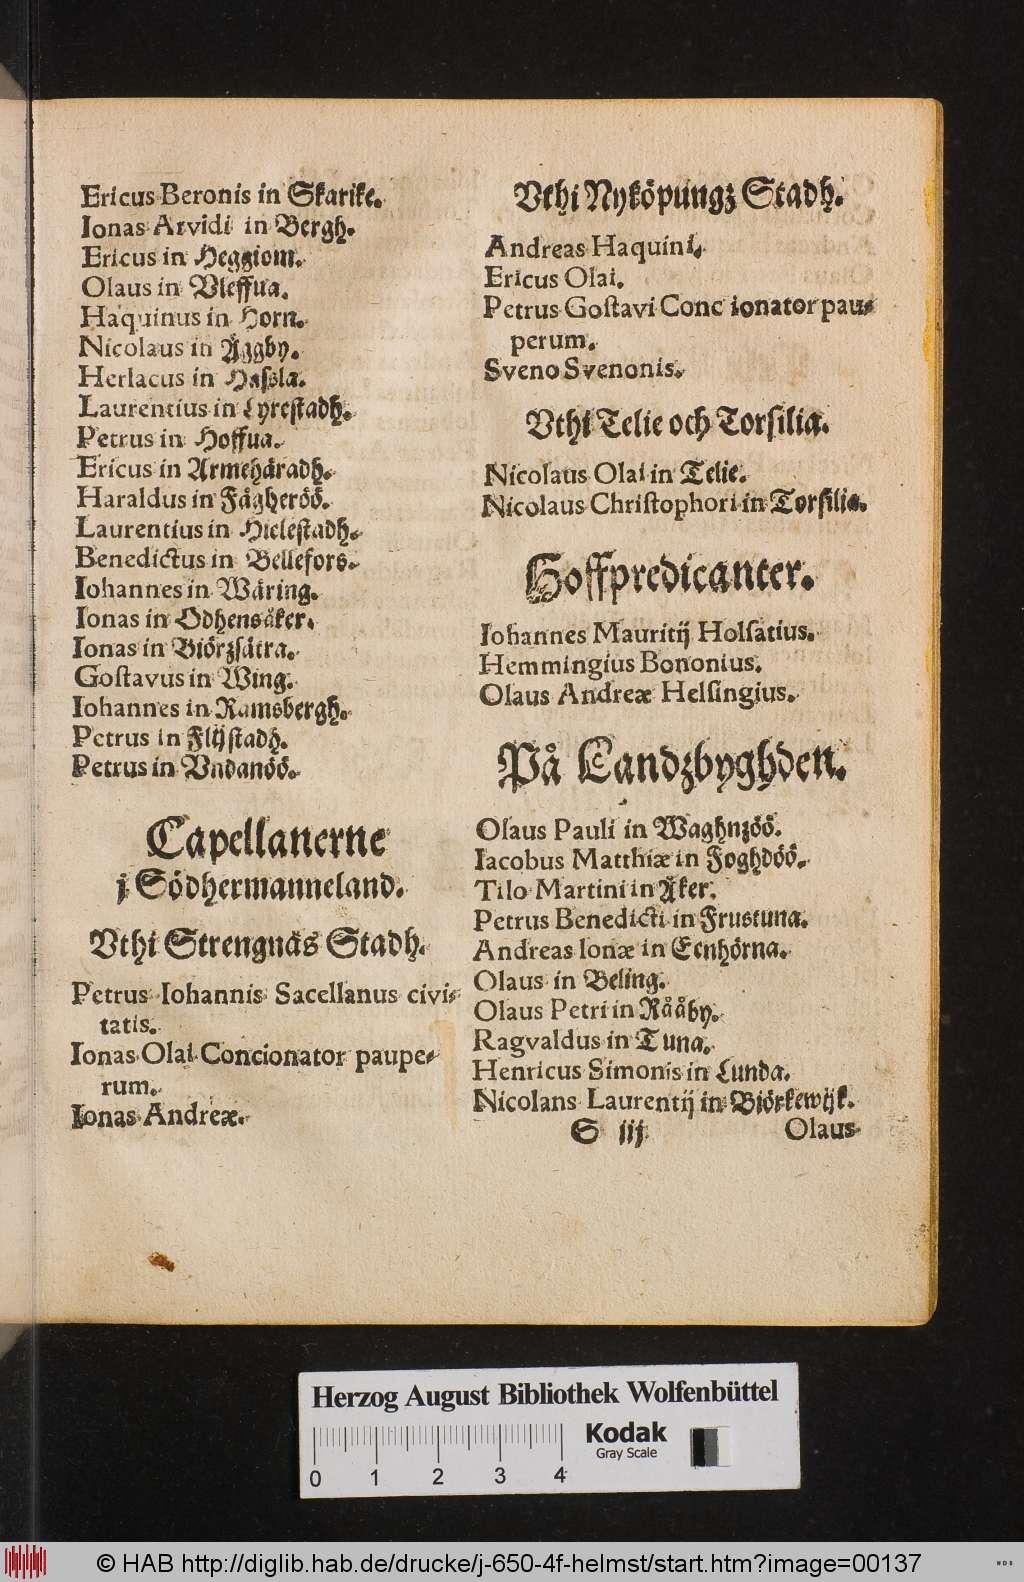 Ericus Beronis in Skarike.
Ionas Arvidi in Bergh.
Ericus in Heggiom.
Olaus in Vleffua.
Haquinus in Horn.
Nicolaus in Äggby.
Herlacus in Hassla.
Laurentius in Lyrestadh.
Petrus in Hoffua.
Ericus in Armehäradh.
Haraldus in Fägheröö.
Laurentius in Hielestadh.
Benedictus in Bellefors.
Iohannes in Wäring.
Ionas in Odhensåker.
Ionas in Biörzsätra.
Gostavus in Wing.
Iohannes in Ramsbergh.
Petrus in Flijstadh.
Petrus in Vndanöö.
Capellanerne
j Södhermanneland.
Vthi Strengnäs Stadh.
Petrus Iohannis Sacellanus civi-
tatis.
Ionas Olai Concionator paupe-
rum.
Ionas Andreæ.
Vthi Nyköpungz Stadh.
Andreas Haquini.
Ericus Olai.
Petrus Gostavi Conc ionator pau-
perum.
Sveno Svenonis.
Vthi Telie och Torsilia.
Nicolaus Olai in Telie.
Nicolaus Christophori in Torsilia.
Hoffpredicanter.
Iohannes Mauritij Holsatius.
Hemmingius Bononius.
Olaus Andreæ Helsingius.
På Landzbyghden.
Olaus Pauli in Waghnzöö.
Iacobus Matthiæ in Foghdöö.
Tilo Martini in Åker.
Petrus Benedicti in Frustuna.
Andreas Ionæ in Eenhörna.
Olaus in Beling.
Olaus Petri in Rååby.
Ragvaldus in Tuna.
Henricus Simonis in Lunda.
Nicolans Laurentij in Biörkewijk.
S iij Olaus
Herzog August Bibliothek Wolfenbüttel
Kodak
Gray Scale
0 1 2 3 4
© HAB http://diglib.hab.de/drucke/j-650-4f-helmst/start.htm?image=00137